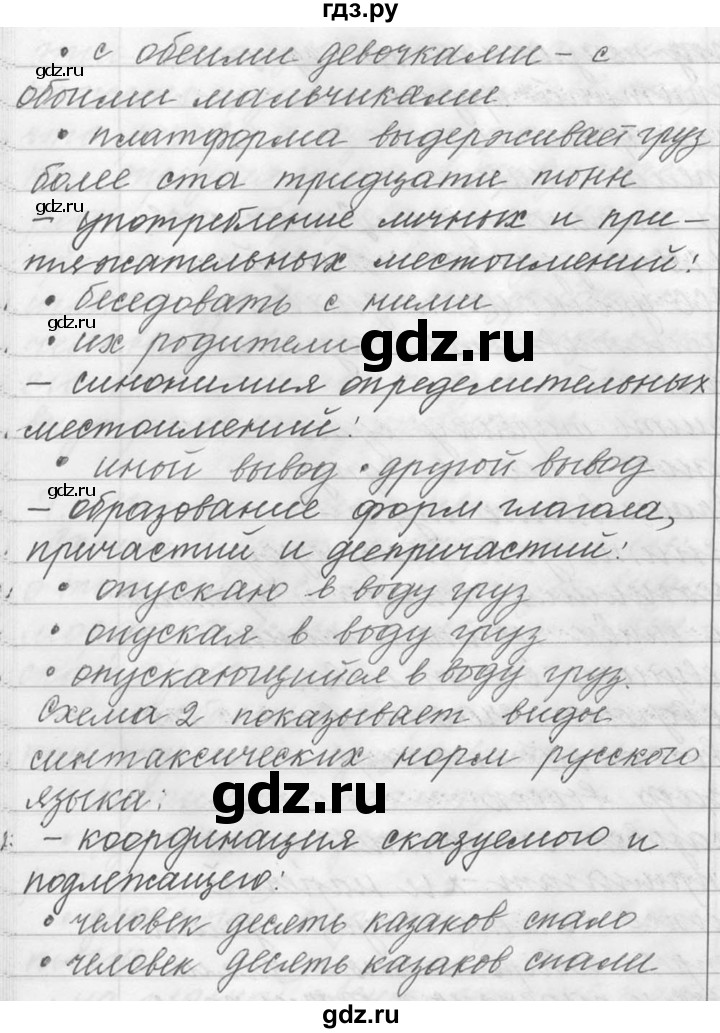 гдз.ру
• с обеими девочками – с
gdz.ru
обоими мальчиками
• платформа выдерживает груз
gdz.ru
более ста тридцати тонн
– употребление личных и при-
gdz.ru
тяжательных местоимений:
• беседовать с ними
gdz.ru
• их родители
gdz.ru
– синонимия определительных
местоимений:
• иной вывод • другой вывод
gdz.ru
– образование форм глагола,
причастий и деепричастий:
• опускаю в воду груз
gdz.ru
• опуская в воду груз
• опускающийся в воду груз.
gdz.ru
Схема 2 показывает виды
синтаксических норм русского
gdz.ru
языка:
gdz.ru
– координация сказуемого и
подлежащего:
gdz.ru
• человек десять казаков спало
• человек десять казаков спали
gdz.ru
gdz.ru